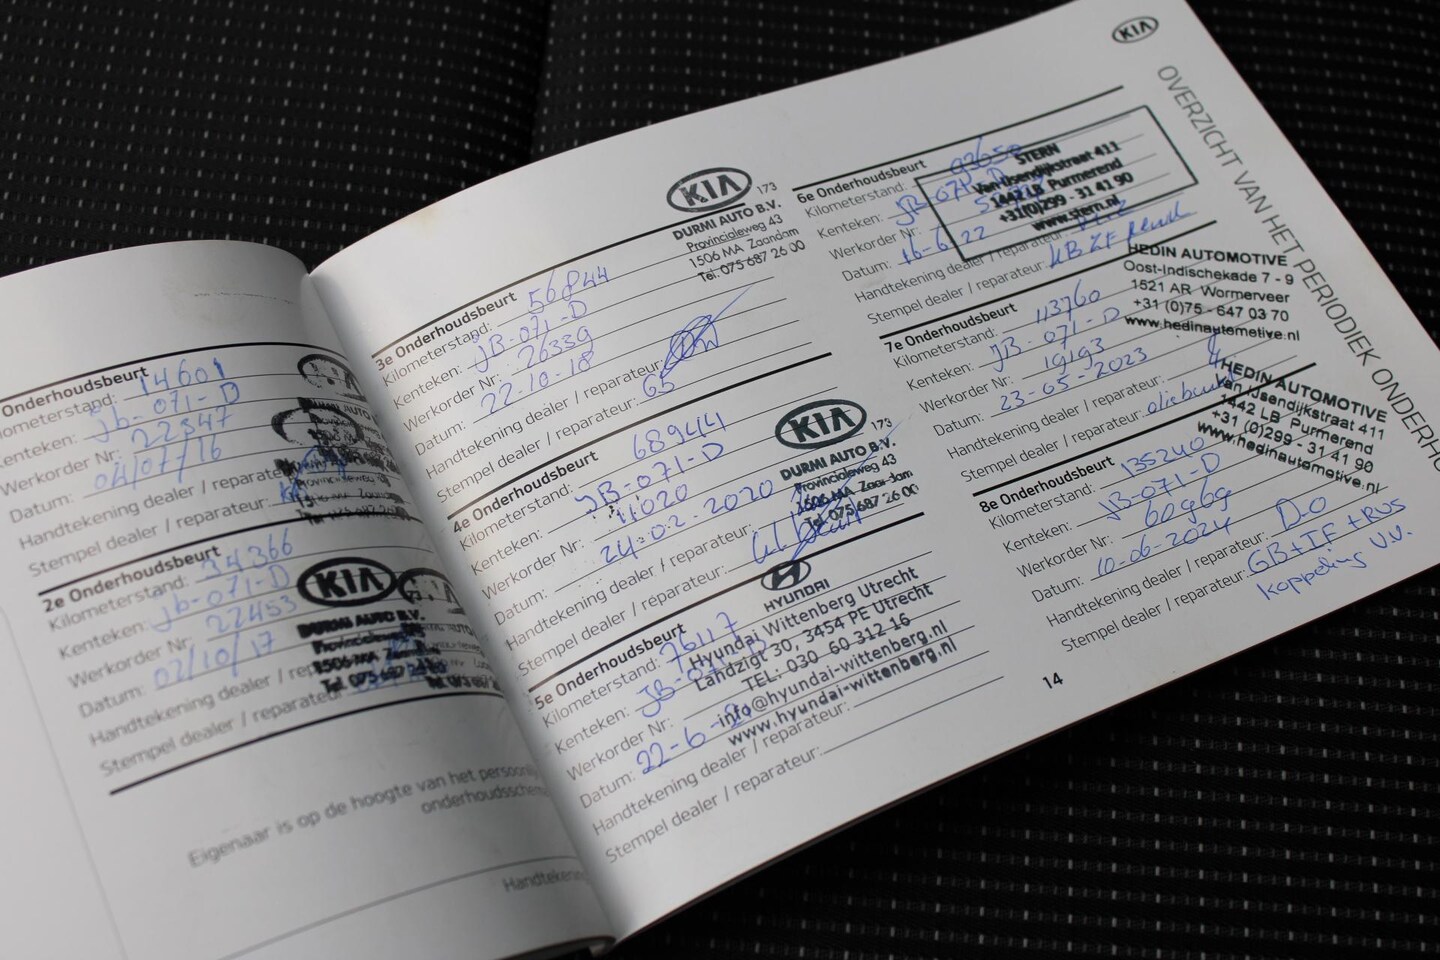 Onderhoudsbeurt
Kilometerstand: 14601
Kenteken: jb-071-D
Werkorder Nr: 22347
Datum: 04/07/16
Handtekening dealer / reparateur:
Stempel dealer / reparateur:
2e Onderhoudsbeurt
Kilometerstand: 34366
Kenteken: jb-071-D
Werkorder Nr: 22453
Datum: 02/10/17
Handtekening dealer
Stempel dealer / reparateur:
KIA
DURMI AUTO B.V.
1506 MA
Tel. 075 687
Eigenaar is op de hoogte van het
Handtekening
3e Onderhoudsbeurt
Kilometerstand: 56844
Kenteken: JB-071-D
Werkorder Nr: 26339
Datum: 22-10-18
Handtekening dealer / reparateur:
Stempel dealer / reparateur: GS
KIA 173
DURMI AUTO B.V.
Provincialeweg 43
1506 MA Zaandam
Tel: 075 687 26 00
4e Onderhoudsbeurt
Kilometerstand: 68944
Kenteken: JB-071-D
Werkorder Nr: 11020
Datum: 24-02-2020
Handtekening dealer / reparateur:
Stempel dealer / reparateur:
KIA 173
DURMI AUTO B.V.
Provincialeweg 43
1506 MA Zaandam
Tel: 075 687 26 00
5e Onderhoudsbeurt
Kilometerstand: 76117
Kenteken: JB-071-D
Werkorder Nr:
Datum: 22-6-21
Handtekening dealer / reparateur:
Stempel dealer / reparateur:
HYUNDAI
Hyundai Wittenberg Utrecht
Landzigt 30, 3454 PE Utrecht
TEL: 030 60 312 16
info@hyundai-wittenberg.nl
www.hyundai-wittenberg.nl
KIA
OVERZICHT VAN HET PERIODIEK ONDERHO
6e Onderhoudsbeurt
Kilometerstand: 93650
Kenteken: JB-071-D
Werkorder Nr:
Datum: 16-6-22
Handtekening dealer / reparateur:
Stempel dealer / reparateur:
STERN
Van IJsendijkstraat 411
1442 LB Purmerend
+31(0)299 - 31 41 90
www.stern.nl
7e Onderhoudsbeurt
Kilometerstand: 113760
Kenteken: JB-071-D
Werkorder Nr: 19193
Datum: 23-05-2023
Handtekening dealer / reparateur:
Stempel dealer / reparateur: oliebeurt
HEDIN AUTOMOTIVE
Oost-Indischekade 7 - 9
1521 AR Wormerveer
+31 (0)75 - 647 03 70
www.hedinautomotive.nl
8e Onderhoudsbeurt
Kilometerstand: 135240
Kenteken: JB-071-D
Werkorder Nr: 60969
Datum: 10-06-2024
Handtekening dealer / reparateur: DO
Stempel dealer / reparateur: GB+IF +RVS
koppeling v.v.
HEDIN AUTOMOTIVE
Van IJsendijkstraat 411
1442 LB Purmerend
+31 (0)299 - 31 41 90
www.hedinautomotive.nl
14